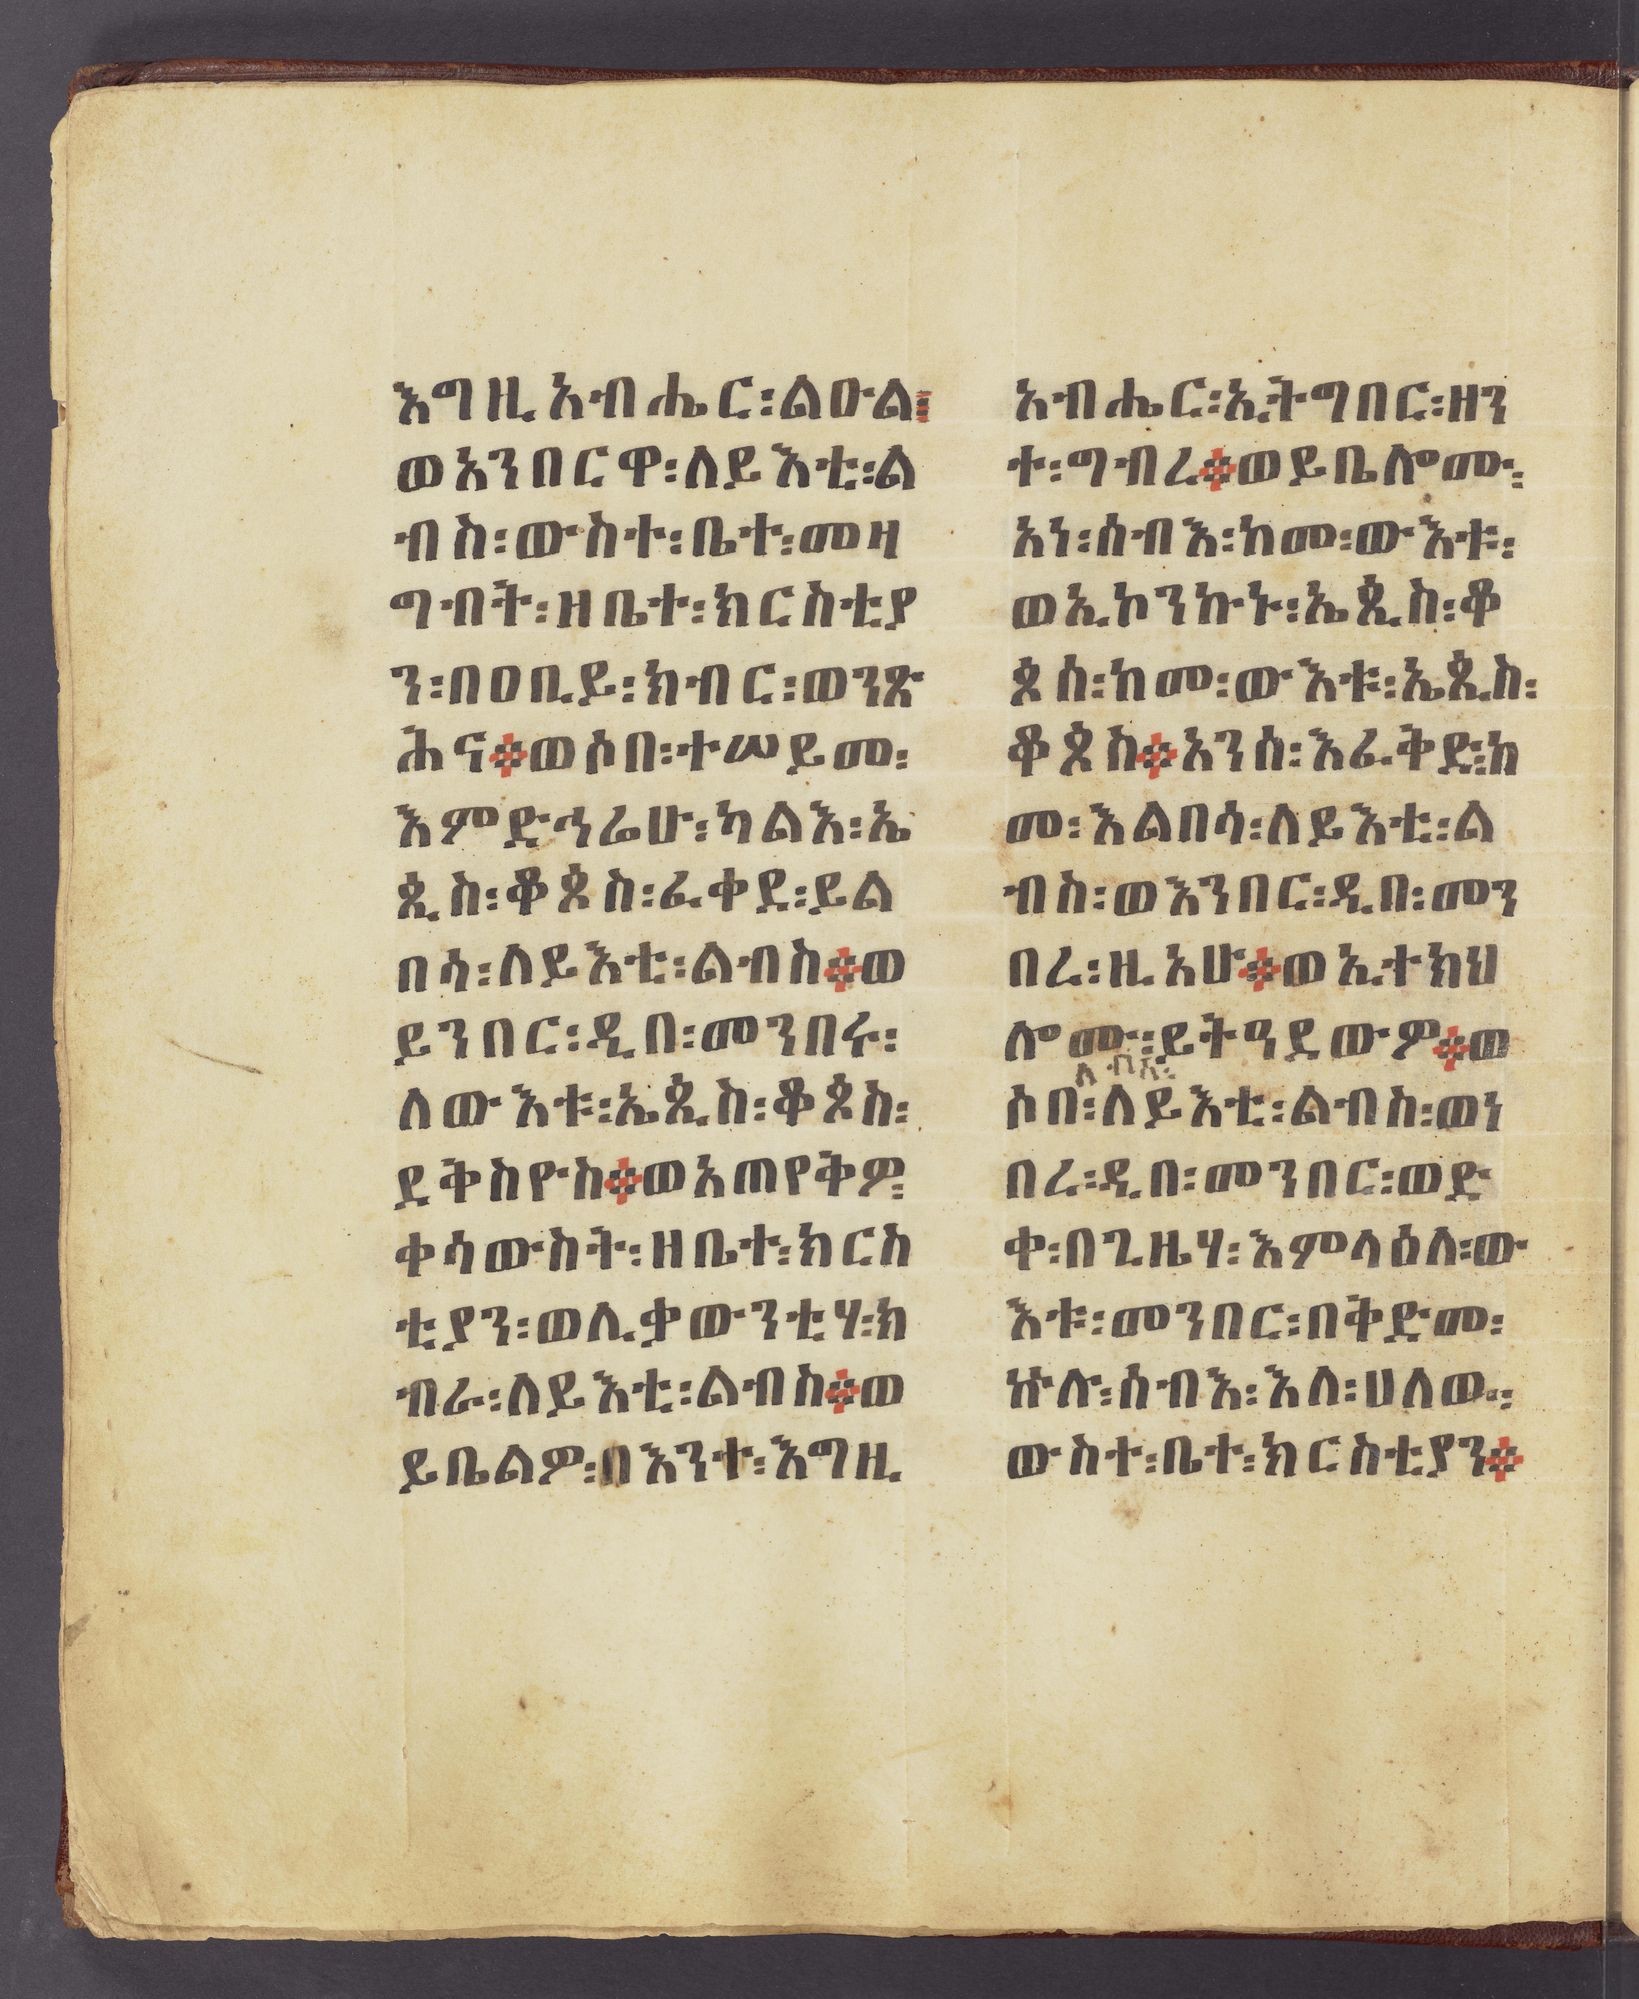 እግዚአብሔር፡ልዑል፡
ወአንበርዋ፡ለይእቲ፡ል
ብስ፡ውስተ፡ቤተ፡መዛ
ግብት፡ዘቤተ፡ክርስቲያ
ን፡በዐቢይ፡ክብር፡ወንጽ
ሕና፨ወሶበ፡ተሠይመ፡
እምድኅሬሁ፡ካልእ፡ኤ
ጲስ፡ቆጶስ፡ፈቀደ፡ይል
በሳ፡ለይእቲ፡ልብስ፨ወ
ይንበር፡ዲበ፡መንበሩ፡
ለውእቱ፡ኤጲስ፡ቆጶስ፡
ደቅስዮስ፨ወአጠየቅዎ፡
ቀሳውስት፡ዘቤተ፡ክርስ
ቲያን፡ወሊቃውንቲሃ፡ክ
ብራ፡ለይእቲ፡ልብስ፨ወ
ይቤልዎ፡በእንተ፡እግዚ
አብሔር፡ኢትግበር፡ዘን
ተ፡ግብረ፨ወይቤሎሙ፡
አነ፡ሰብእ፡ከመ፡ውእቱ፡
ወኢኮንኩኑ፡ኤጲስ፡ቆ
ጶስ፡ከመ፡ውእቱ፡ኤጲስ፡
ቆጶስ፨አንሰ፡እፈቅድ፡ከ
መ፡እልበሳ፡ለይእቲ፡ል
ብስ፡ወእንበር፡ዲበ፡መን
በረ፡ዚአሁ፨ወኢተክህ
ሎሙ፡ይትዓደውዎ፨ወ
ለብሰ፡
ሶበ፡ለይእቲ፡ልብስ፡ወነ
በረ፡ዲበ፡መንበር፡ወድ
ቀ፡በጊዜሃ፡እምላዕለ፡ው
እቱ፡መንበር፡በቅድመ፡
ኵሉ፡ሰብእ፡እለ፡ሀለው፡
ውስተ፡ቤተ፡ክርስቲያን፨